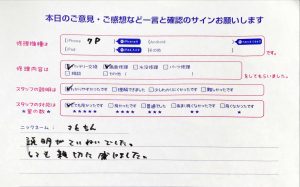 本日のご意見・ご感想など一言と確認のサインお願いします
修理機種は iPhone 7P Android
iPad iPod その他 です。
修理内容は バッテリー交換 液晶修理 水没修理 パーツ修理
その他( ) をしてもらいました。
スタッフの説明は わかりやすかったです 理解できました 少しわかりにくかったです 難しかったです
スタッフの対応は とても良かったです 良かったです 普通でした あまり良くなかったです 良くなかったです
★星の数★ ★★★★★ ★★★★ ★★★ ★★ ★
ニックネーム:
説明がていねいでした。
とても親切だ 感じました。